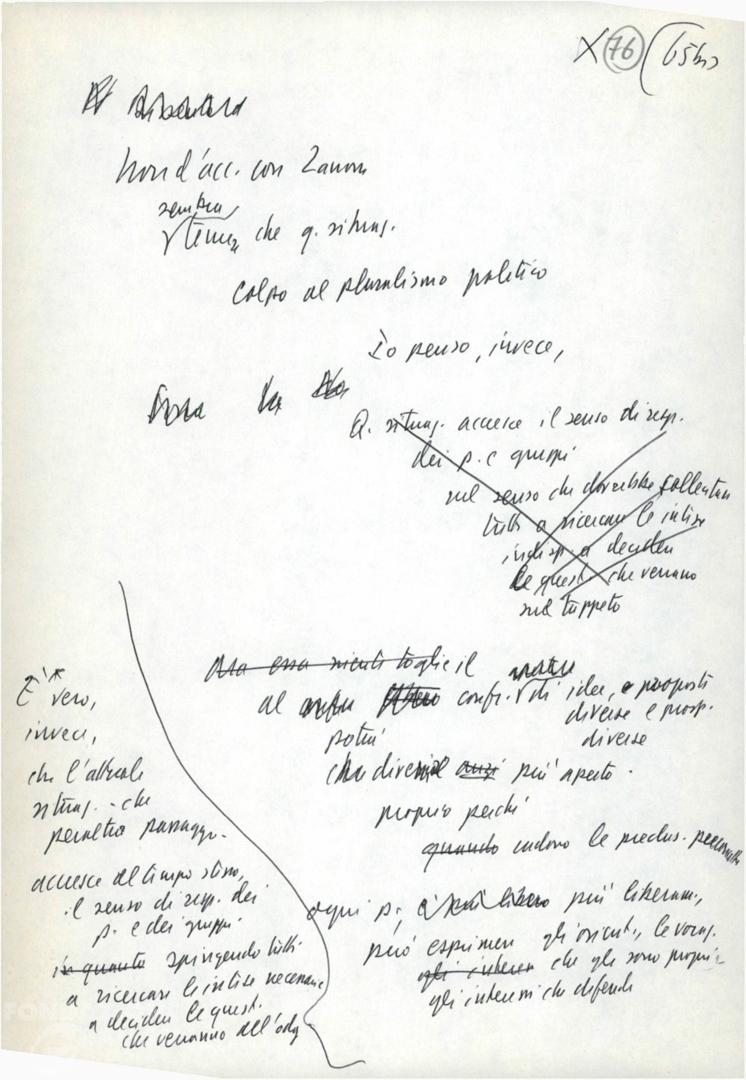 X 76 (65bis
Non d'acc. con Zanon
sembra
che q. situaz.
colpo al pluralismo politico
Io penso, invece,
Q. situaz. accesce il senso di resp.
dei p. e gruppi
sul senso che dovrebbe sollecitare
tutti a ricercare le intese
a decidere
le quest. che verranno
sul tappeto
Ma essa nienti toglie il
al confr. di idee, e proposti
diverse e prosp.
diverse
potrà
divenire anzi più aperto.
proprio perché
quando cadono le preclus.
ogni p. è più libero più liberam.,
può esprimere gli orient., le vocaz.
gli interessi che gli sono propri
gli interessi che difende
È vero,
invece,
che l'attuale
situaz. - che
peraltro
accesce al tempo stesso,
il senso di resp. dei
p. e dei gruppi
in quanto spingendo tutti
a ricercare le intese necessarie
a decidere le quest.
che verranno all'odg